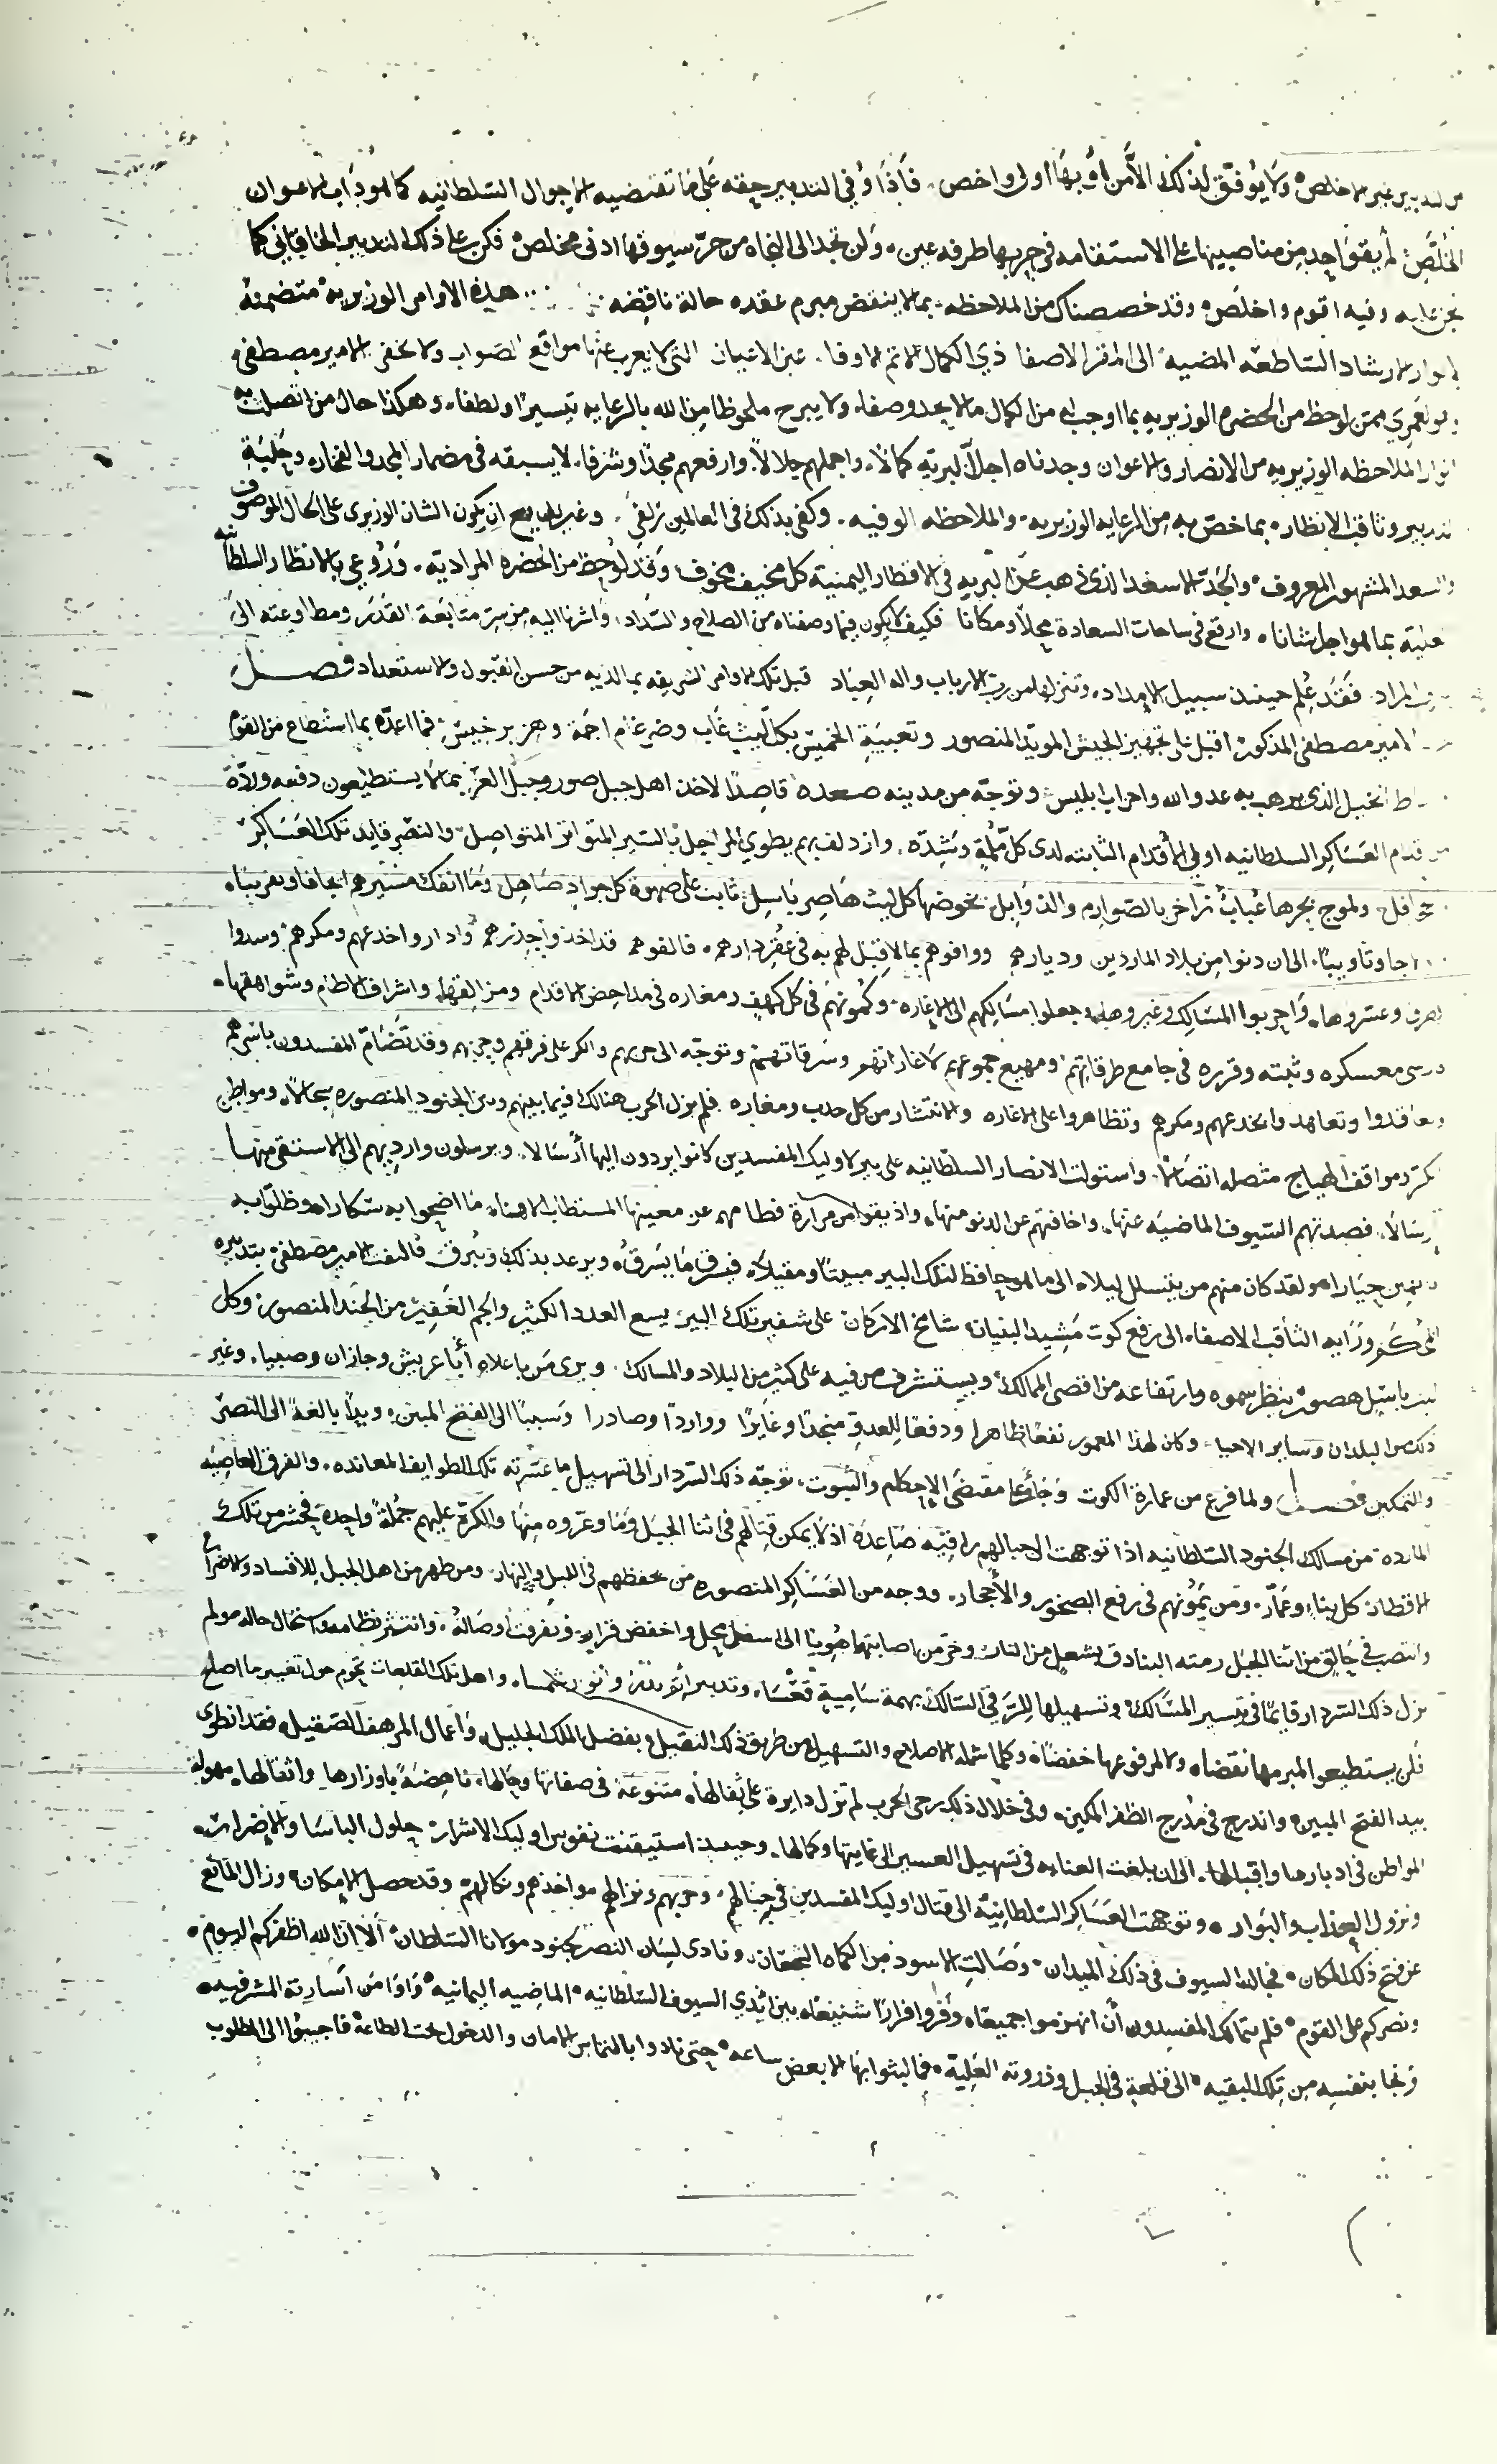 من التدبير غير الاخلص ولا يوفق لذلك الا من أوبها اولى واخص فاذا وُفي التدبير حقه على ما تقتضيه الاحوال السلطانيه كما هو دَاب الاعوان
المخلَّصِ لم يبق واحد من مناصبيها على الاستقامه في حربها طرفه عين ولن تجد الى النجاه من حرّ سيوفها ادنى مخلص فكن على ذلك التدبير الخاقاني كما
نحن عليه وفيه اقوم واخلص وقد خصصناك من الملاحظه بما لا ينقض مبرم عقده حالة ناقضه هذه الاوامر الوزيريه متضمنه
لانوار الارشاد الساطعه المضيه الى المقر الاصفا ذي الكمال الاتم الاوفا عين الاعيان التي لا يعزب عنها مواقع الصواب ولا تخفى الامير مصطفى
وهو لعمري ممن لوحظ من الحضره الوزيريه بما اوجب له من الكمال ما لا يحد وصفا ولا يبرح ملحوظا من الله بالرعايه تيسيرًا ولطفا وهكذا حال من اتصلت به
انوار الملاحظه الوزيريه من الانصار والاعوان وجدناه اجلّ البريه كمالا واجملهم جلالاً وارفعهم مجدًا وشرفا لا يسبقه في مضمار المجد والفخار وحَلبَةِ
التدبير وثاقب الانظار بما خصّ به من الرعايه الوزيريه والملاحظه الوفيه وكفى بذلك في العالمين زلفى وغير بديع ان يكون الشان الوزيري على الحال الموصوف
والسعد المشهور المعروف والجَدّ الاسعد الذي ذهب عن البريه في الاقطار اليمنية كل مخيف مخوف وقد لوحظ من الحضره المراديّه ورُوعي بالانظار السلطانيه
العليّه بما هو اجل شانا وارفع في ساحات السعادة محلاً ومكانا فكيف لا يكون فيما وصفناه من الصلاح والسّداد واشرنا اليه من سر متابعة القَدَر ومطاوعته الى
المراد فقد عُلم حينئذ سبيل الامداد وتنزلها من رب الارباب واله العباد قبل تلك الاوامر الشريفه بما لديه من حسن القبول والاستعداد فصل
الامير مصطفى المذكور اقبل على تجهيز الجيش المويد المنصور وتعبيَةِ الخميس بكل ليث غاب وضرغام اجمة وهزبر خيسٍ فما اعدّه بما استطاع من القوه
رباط الخيل الذي يرهب به عدو الله واحزاب ابليس وتوجّه من مدينه صعده قاصدًا لاخذ اهل جبل صور وجبل العز بما لا يستطيعون دفعه وردّه
من اقدام العساكر السلطانيه اولي الاقدام الثابته لدى كل مُلِمّةٍ وشدّه وازدلف بهم يطوي المراحل بالسير المتواتر المتواصل والنصر قايد تلك العساكر
ولموج بحرها عُبابٌ زاخر بالصّوارم والذوابل يخوضها كل ليث هاصر باسل ثابت على صهوة كل جوادٍ صاهل وما انفك مسيرهم ايجافا وتقريبا
وتاويبًا الى ان دنوا من بلاد الماردين وديارهم ووافوهم بما لا قِبَل لهم به في عُقر دارهم فالفوهم قد اخذوا حِذرهم وادار واخدعهم ومكرهم وسدوا
الطرق وعسروها واخربوا المسالك وغيروها وجعلوا مسالكهم الى الاغاره وكمونهم في كل كهف ومغاره في مداحض الاقدام ومزالقها واشراف الاطام وشواهقها
معسكره وثبته وقرره في جامع طرقاتهم ومهيع جموعهم لاغاراتهم وسرقاتهم وتوجّه الى حربهم والكر على فرقهم وحزبهم وقد تضامّ المفسدون باسرهم
وتعاقدوا وتعاهدوا بخدعهم ومكرهم وتظاهروا على الاغاره والانتشار من كل حدب ومغاره فلم يزل الحرب هنالك فيما بينهم وبين الجنود المنصوره سجالاً ومواطن
الكرّ ومواقف الهياج متصله اتصالا واستولت الانصار السلطانيه على بير لاوليك المفسدين كانوا يردون اليها أرسالا ويرسلون واردِيهم الى الاستقى منها
ارسالا فصدتهم السيوف الماضيه عنها واخافتهم عن الدنو منها واذيقوا من مرارة فطامهم عن معينها المستطاب الاهناه ما اضحوا به سكارا وظلّوا به
حيارا ولقد كان منهم من يتسلل ليلا الى ما هو حافظ لتلك البير مبيتًا ومقيلا فيسرق ما يسرقُ ويرعد بذلك ويُبرق فالتفت الامير مصطفى بتدبيره
المُحكَم ورَايه الثاقب الاصفا الى رفع كوت مَشِيد البنيان شامخ الاركان على شفير تلك البير يسع العدد الكثير والجم الغفير من الجند المنصور وكل
ليث باسل هصور ينظر سموه وارتفاعه من اقصى الممالك ويستشرف من فيه على كثير من البلاد والمسالك ويرى من باعلاه أبا عريش وجازان وصبيا وغير
ذلك من البلدان وساير الاحيا وكان لهذا المعمور نفعًا ظاهرا ودفعًا للعدوّ منجدًا وغايرًا وواردًا وصادرا وسببًا الى الفتح المبين ويدًا بالغةً الى النصر
والتمكين فصل ولما فرغ من عمارة الكوت وجا على مقتضى الاحكام والثبوت توجّه ذلك السردار الى تسهيل ما عسّرته تلك الطوايف المعانده والفرق العاصيه
المارده من مسالك الجنود السلطانيه اذا توجهت الى جبالهم راقيه صاعدة اذ لا يمكن قتالهم في اثنا الجبل وما وعّروه منها والكرّة عليهم جُملةً واحدة فحشر من تلك
الاقطار كل بناءٍ وعمّار ومن يَمُونهم في رفع الصخور والاحجار ووجه من العساكر المنصوره من يحفظهم في الليل والنهار ومن ظهر من اهل الجبل للافساد والاضرار
وانتصب في حالق من اثنا الجبل رمته البنادق بشعل من النار وخرّ من اصابتها هُويًا الى اسفل محل واخفض قرار وتفرقت اوصاله وانتثر نظامه واستحال حاله ولم
يزل ذلك السردار قايمًا في تيسير المسالك وتسهيلها للرَّقي السالك بهمة ساميةٍ قعْساء وتدبير واهل تلك القلعات تحوم حول تغيير ما اصلح
فلن يستطيعوا لمبرمها نقضا ولا لمرفوعها خفضا وكلما شمله الاصلاح والتسهيل من طريق ذلك النقيل وبفضل الملك الجليل واعمال المرهف الصقيل فقد انطوى
بيد الفتح المبين واندرج في مُدرج الظفر المكين وفي خلال ذلك رحى الحرب لم تزل دايرة على ثفالها متنوعة في صفاتها وحالها ناهضةً باوزارها واثقالها مهولة
المواطن في ادبارها واقبالها الى ان بلغت العنايه في تسهيل العسير الى غايتها وكمالها وحينئذ استيقنت نفوس اوليك الاشرار حلول الباسا والاضرار
ونزول العذاب والبوار وتوجهت العساكر السلطانيّه الى قتال اوليك المفسدين في جبالهم وحربهم ونزالهم مواخذهم ونكالهم وقد حصل الامكان وزال المانع
عن فتح ذلك المكان فجالت السيوف في ذلك الميدان وصالت الاسود من الكماه الشجعان ونادى لسان النصر لجنود مولانا السلطان ألا ان الله اظفركم اليوم
ونصركم على القوم فلم يتمالك المفسدون أن انهزموا جميعا وفروا فرارًا شنيعا بين ايدي السيوف السلطانيه الماضيه اليمانيه وآوا من اسارته المشرفيه
ونجا بنفسه من تلك البقيه الى قلعةٍ في الجبل وذروته العَلية فما لبثوا بها الا بعض ساعه حتى نادوا بالتماس الامان والدخول تحت الطاعة فاجيبوا الى المطلوب